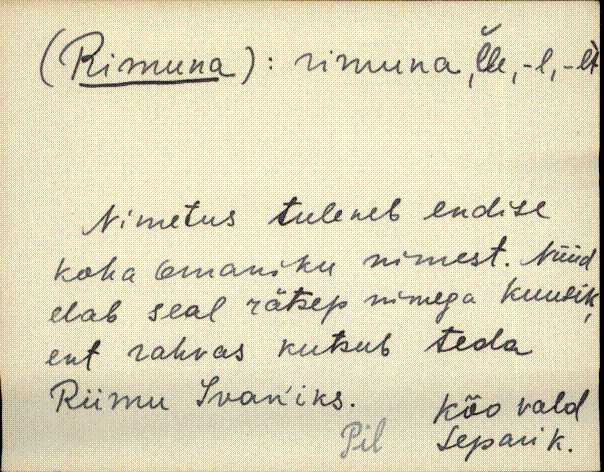 (Rimuna): rimuna, -le, -l, -lt
Nimetus tuleneb endise
koha omaniku nimest. Nüüd
elab seal rätsep nimega Kuusik,
ent rahvas kutsub teda
Riimu Ivan'iks.
Kõo vald
Pil Separik.